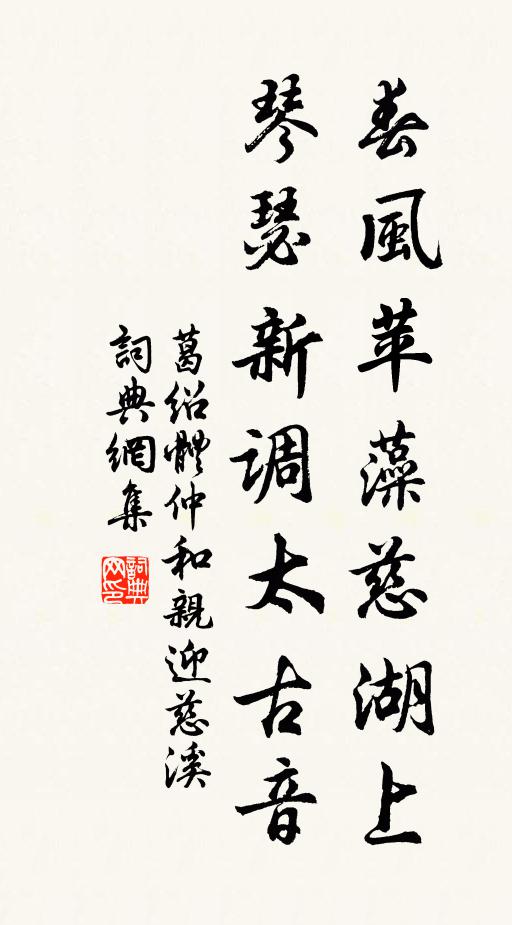 春風苹藻慈湖上
琴瑟新調太古音
葛紹體仲和親迎慈溪
詞典網集
詞典网印